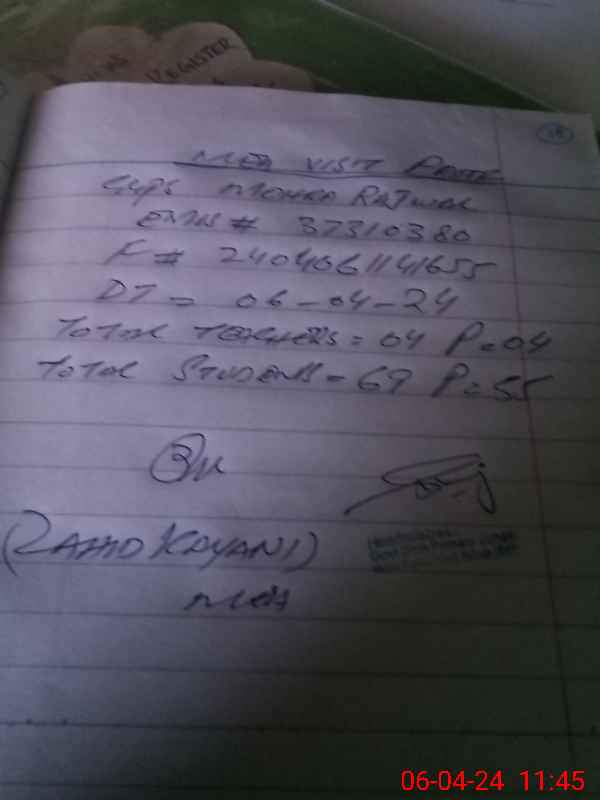 REGISTER
MEA VISIT PROFR
GGPS MOHRA RAJWAL
EMIS # 37310380
F# 2404061141655
DT = 06-04-24
TOTAL TEACHERS = 04 P=04
TOTAL STUDENTS = 69 P=55
(ZAHID KAYANI)
MEA
06-04-24 11:45